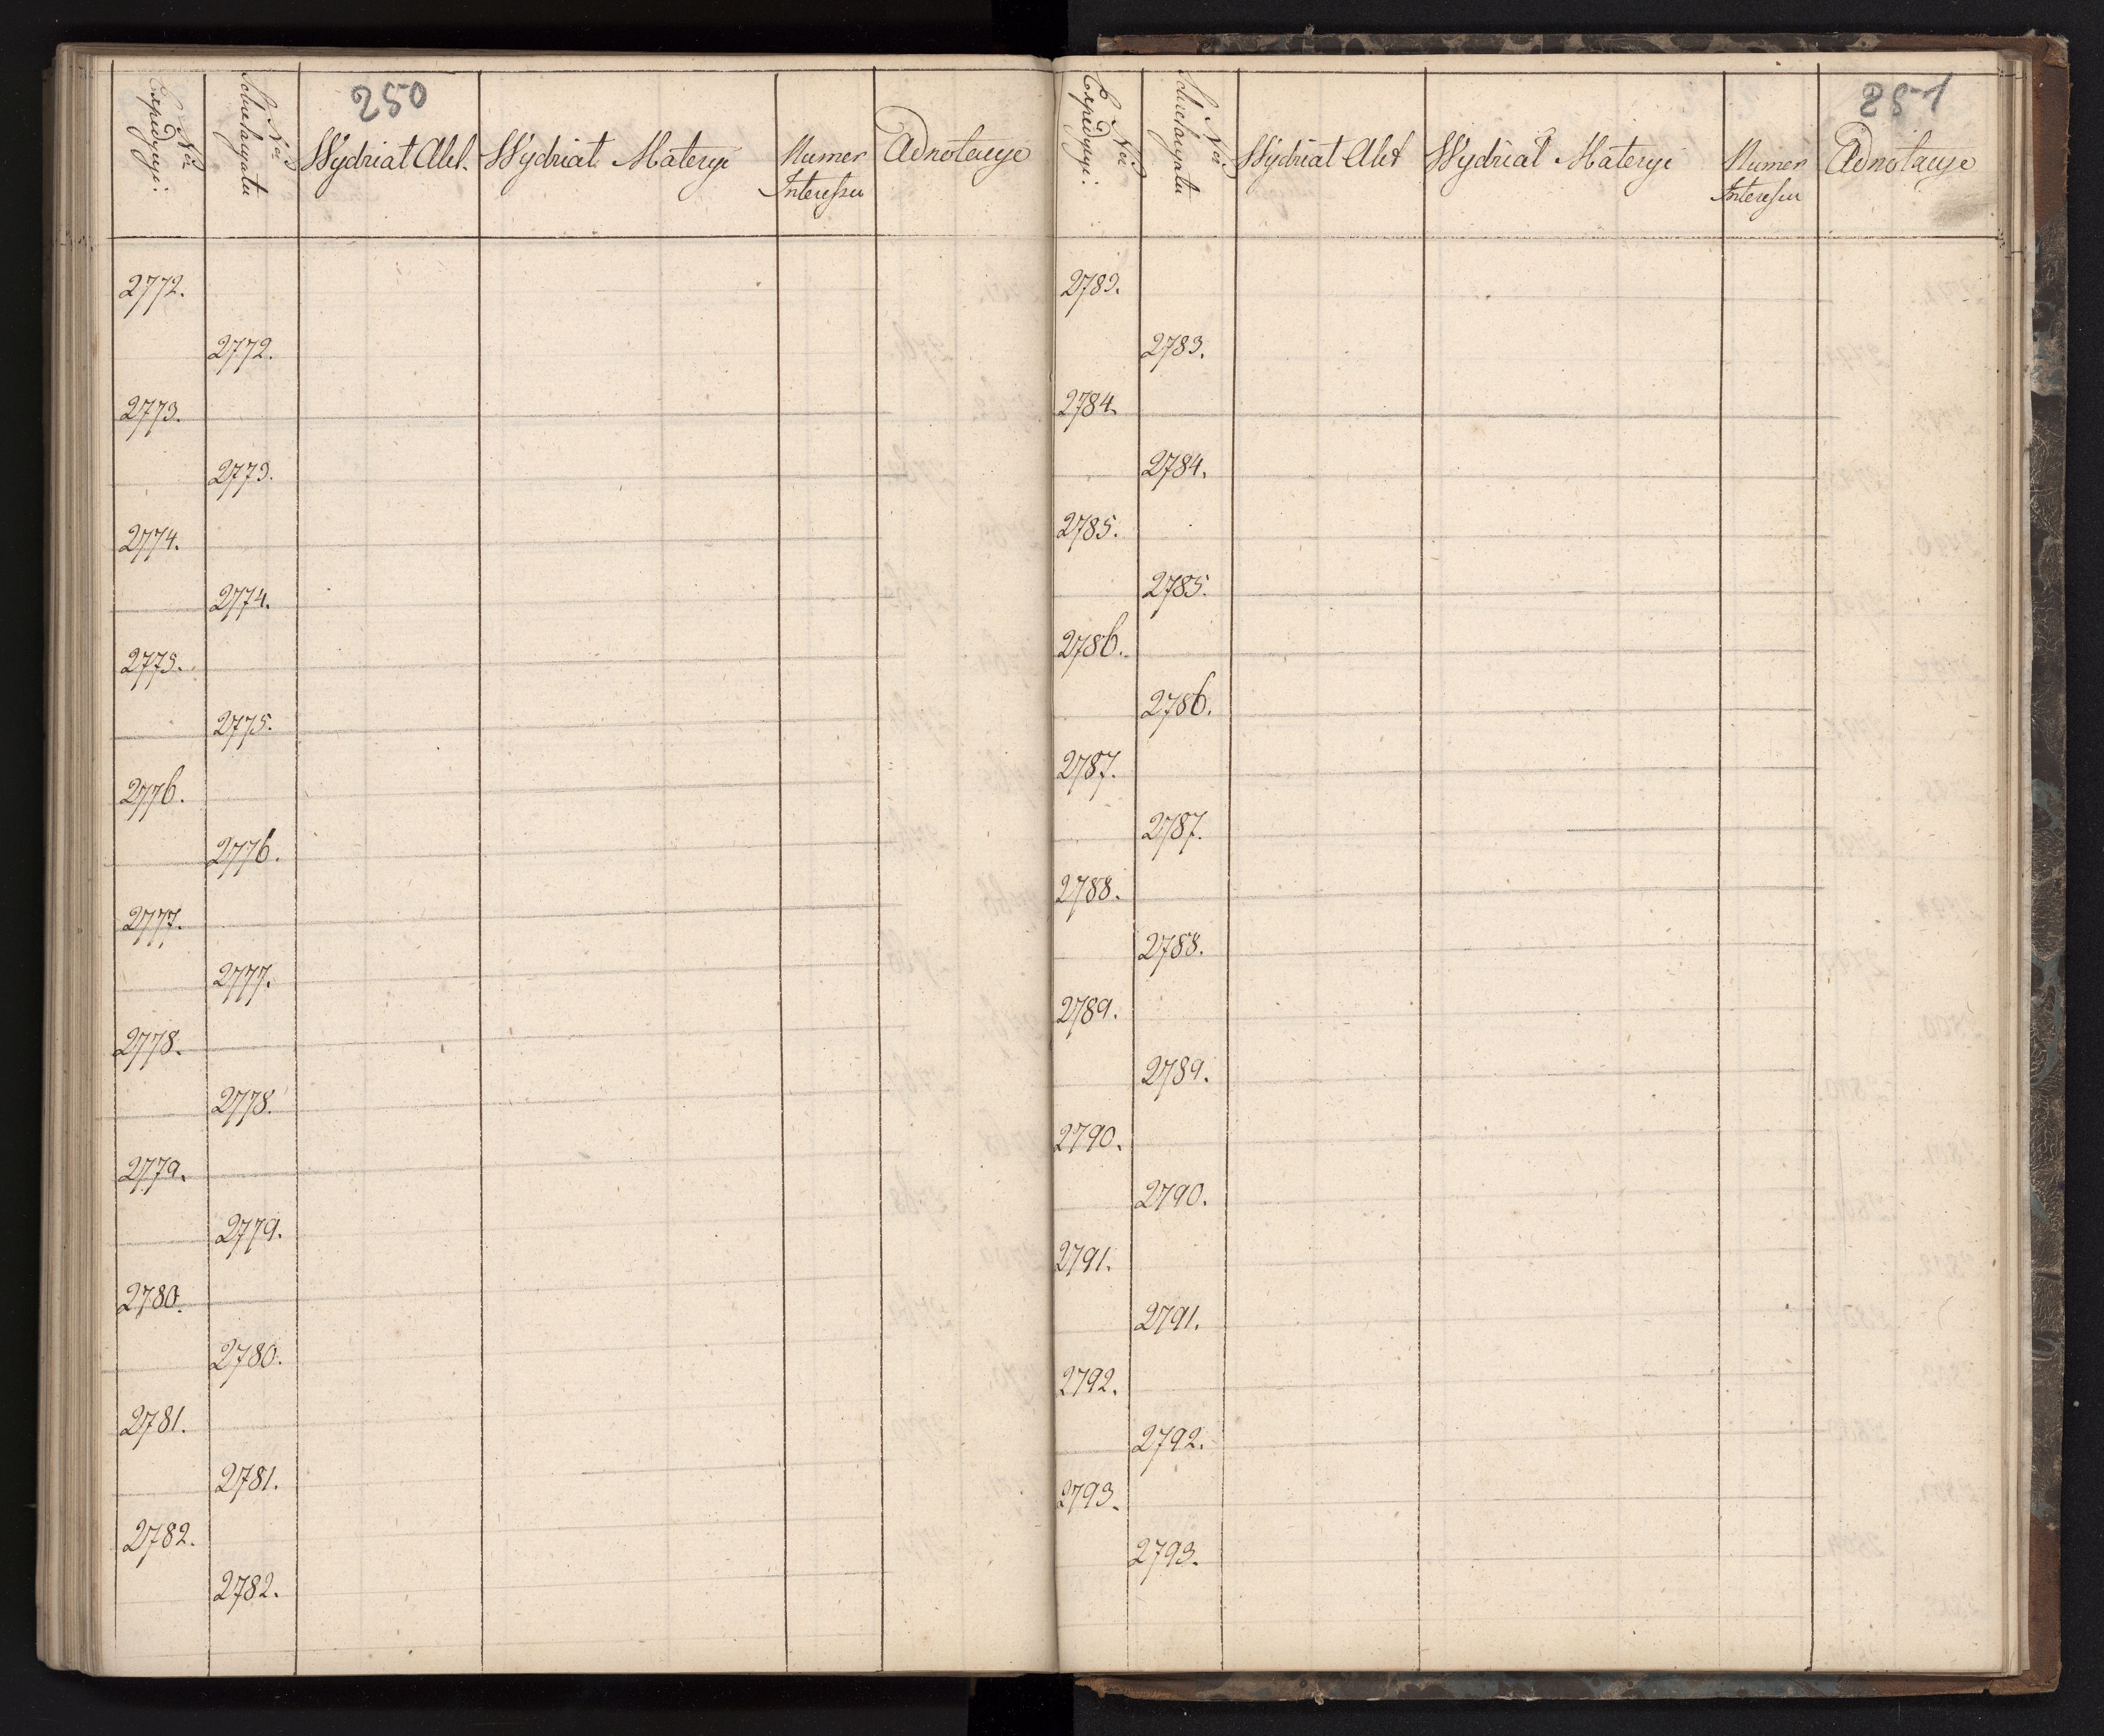 250
Nro Expedycyi:
Nro
Wydział Akt.
Wydział Materyi
Numer Interessu
Adnotacye
2772.
2772.
2773.
2773.
2774.
2774.
2775.
2775.
2776.
2776.
2777.
2777.
2778.
2778.
2779.
2779.
2780.
2780.
2781.
2781.
2782.
2782.
251
Nro Expedycyi:
Nro
Wydział Akt
Wydział Materyi
Numer Interessu
Adnotacye
2783.
2783.
2784.
2784.
2785.
2785.
2786.
2786.
2787.
2787.
2788.
2788.
2789.
2789.
2790.
2790.
2791.
2791.
2792.
2792.
2793.
2793.